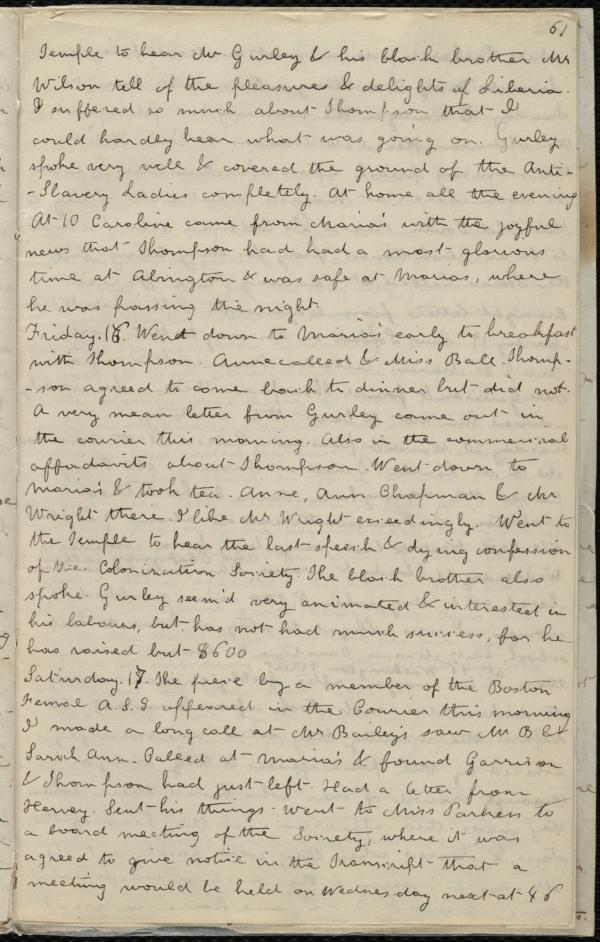 61
Temple to hear Mr Gurley & his black brother Mr
Wilson tell of the pleasures & delights of Liberia.
I suffered so much about Thompson that I
could hardly hear what was going on. Gurley
spoke very well & covered the ground of the Anti-
-Slavery Ladies completely. At home all the evening
At 10 Caroline came from Maria's with the joyful
news that Thompson had had a most glorious
time at Abington & was safe at Marias, where
he was passing the night.
Friday. 16. Went down to Maria's early to breakfast
with Thompson. Anne called & Miss Ball. Thomp-
-son agreed to come back to dinner but did not.
A very mean letter from Gurley came out in
the courier this morning. Also in the commercial
affadavits about Thompson. Went down to
Maria's & took tea. Anne, Ann Chapman & Mr
Wright there. I like Mr Wright exceedingly. Went to
the Temple to hear the last speech & dying confession
of the Colonization Society. The black brother also
spoke. Gurley seem'd very animated & interested in
his labours, but has not had much success, for he
has raised but $600
Saturday. 17. The piece by a member of the Boston
Femal A.S.S. appeared in the Courier this morning
I made a long call at Mr Bailey's saw Mr B &
Sarah Ann. Called at Maria's & found Garrison
& Thompson had just left. Had a letter from
Hervey. Sent his things. Went to Miss Parkers to
a board meeting of the Society, where it was
agreed to give notice in the Transcript that a
meeting would be held on Wednesday next at 46